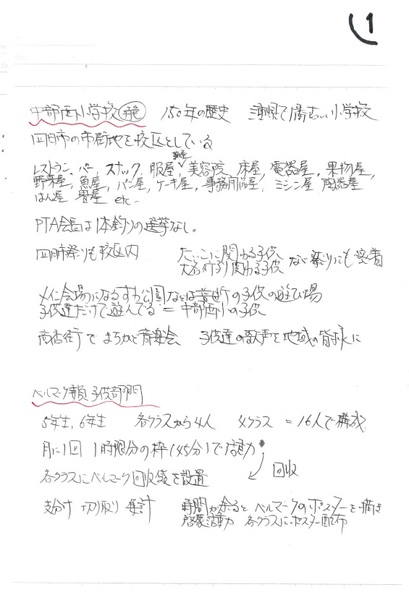 1
中部西小学校 150年の歴史 津で1番古い小学校
四日市の市街地を校区としている
レストラン、バー、スナック、服屋、美容院、床屋、電器屋、果物屋、
野菜屋、魚屋、パン屋、ケーキ屋、事務所、ミシン屋
はんこ屋 etc
PTA会長は 選挙なし。
四日市祭りも校区内 たいこに関わる子供 大名行列関わる子供 など祭りにも密着
メイン会場になるすわ公園 子供の遊び場
子供達だけで遊んでる = 中部西小の子供
商店街で まちかど音楽会 子供達の歌声を地域の皆様に
ベルマーク 子供部門
5年生、6年生 各クラスから4人 4クラス = 16人で構成
月に1回 1時限分の枠(45分)で活動
各クラスにベルマーク回収袋を設置 回収
仕分け 切り取り 集計 時間が余るとベルマークのポスターを描き
啓発活動 各クラスにポスター配布